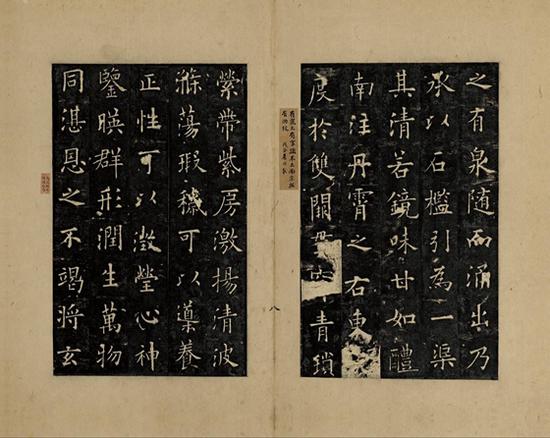 之有泉隨而涌出乃
承以石檻引為一渠
其清若鏡味甘如醴
南注丹霄之右東
度於雙闕青瑣
縈帶紫房激揚清波
滌蕩瑕穢可以導養
正性可以澂瑩心神
鑒暎群形潤生萬物
同湛恩之不竭將玄